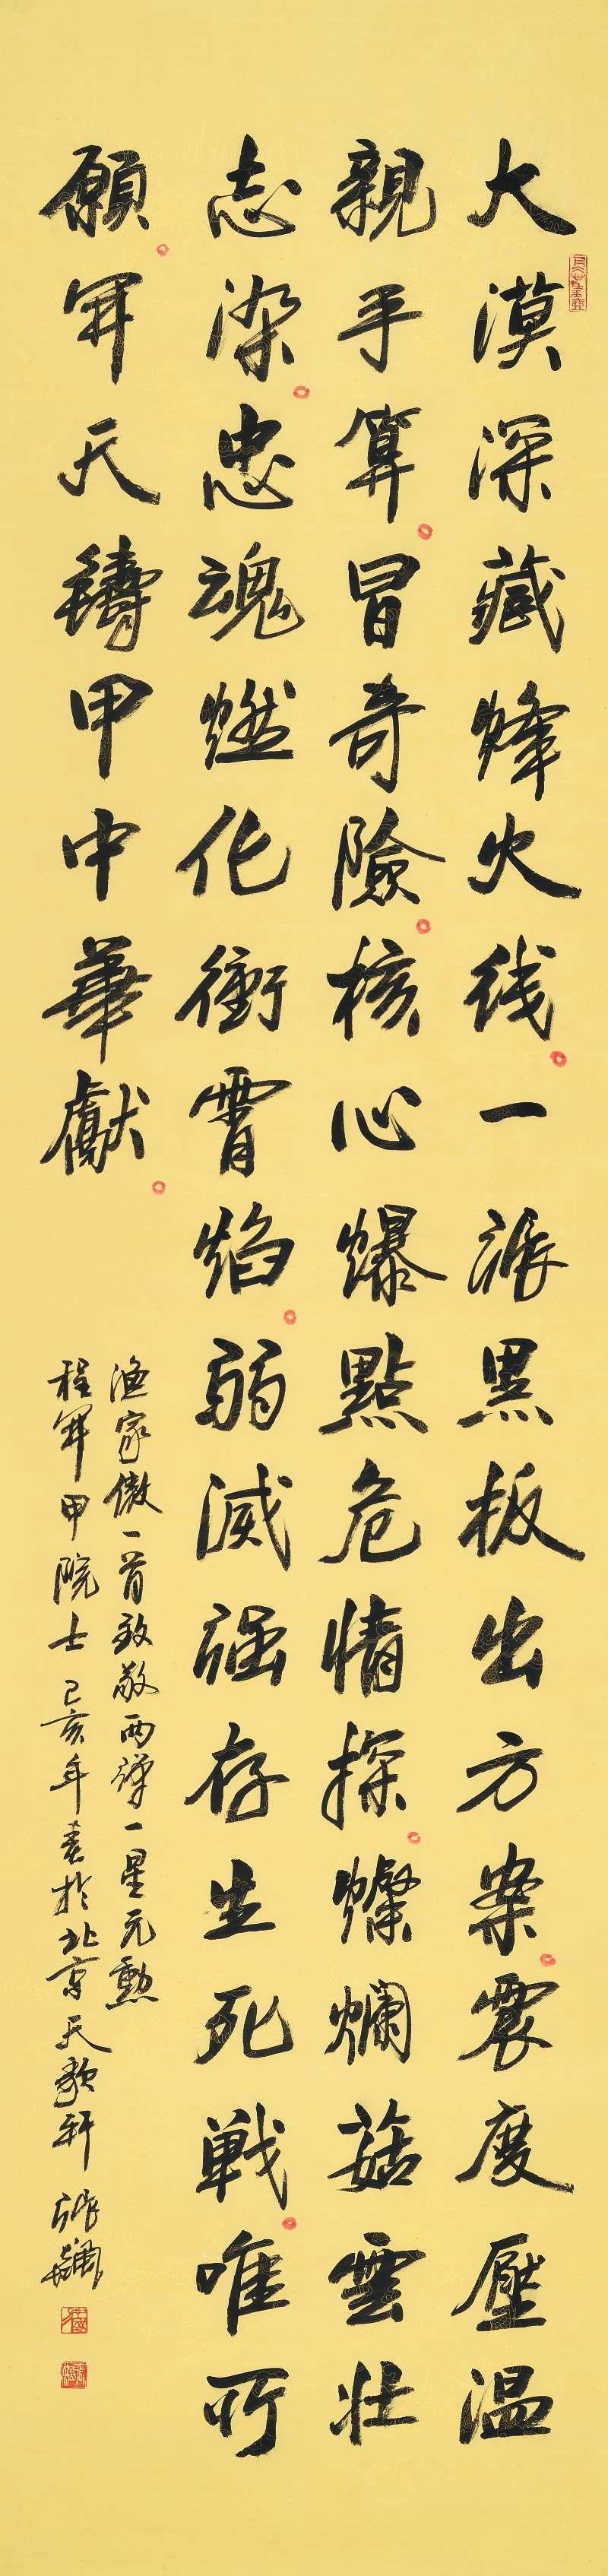 大漠深藏烽火线一派黑板出方案震度壓温
親手算冒奇險核心爆點危情探燦爛菇雲壯
志染忠魂燃化衝霄焰弱滅强存生死戰唯所
願開天鑄甲中華獻
漁家傲一首致敬两彈一星元勳
程開甲院士己亥年春於北京天歌軒